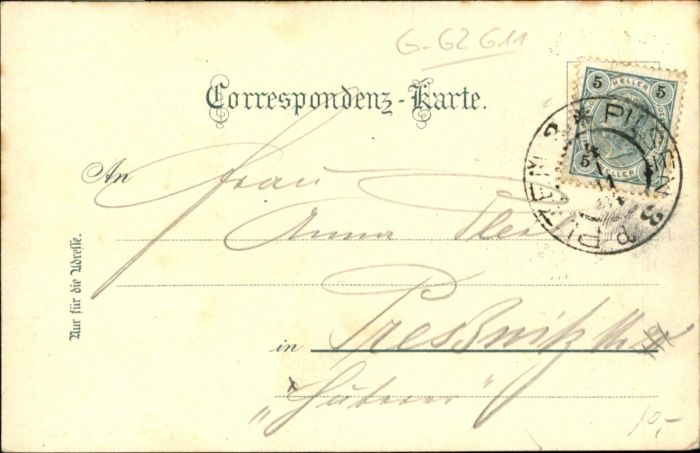 G-62611
Correspondenz-Karte.
5 HELLER 5
5 HELLER
PILSEN 3
PLZEŇ 3
An Frau
Anna
Nur für die Adresse.
in Pressnitz
10,-